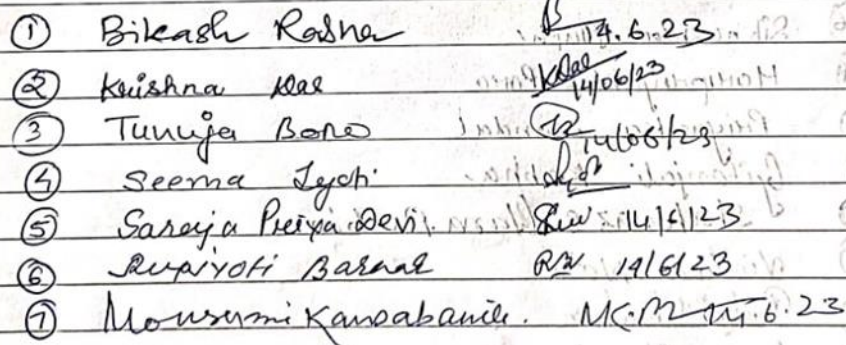 ① Bikash Rabha 14.6.23
② Krishna Das KDas 14/06/23
③ Tunuja Boro 14/06/23
④ Seema Jyoti
⑤ Saroja Priya Devi 14/6/23
⑥ Rupjyoti Barman RB 14/6/23
⑦ Mousumi M 14.6.23